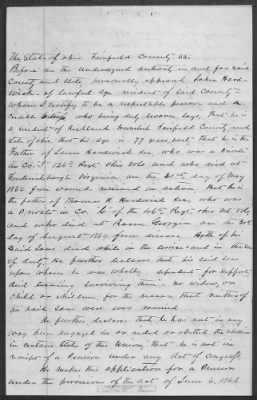 The State of Ohio Fairfield County SS.
Before me the undersigned authority in and for said
County and State personally appeared John Hard
wick of lawful age resident of said County
whom I certify to be a reputable person and a
credible witness who being duly sworn says, that he is
a resident of Richland Township Fairfield County and
State of Ohio, that his age is 77 years past, that he is the
Father of James Hardwick dec. who was a private
in Co. 126th Regt. Ohio vols and who died at
Fredericksburgh Virginia on the 21st day of May
1864 from wound received in action. That he is
the father of Thomas H. Hardwick dec. who was
a Private in Co. 46th Regt. Ohio vet vols
and who died at Georgia on the
day of August 1864 from disease. Both of his
said sons died while in the service and in the line
of duty. He further believes that his said sons
upon whom he was wholly dependent for support
died leaving surviving them no widow, or
child or children for the reason that neither of
his said sons were ever married.
He further declares that he has not in any
way been engaged in or aided or abetted the rebellion
in certain States of the Union, that he is not in
receipt of a Pension under any Act of Congress.
He makes this application for a Pension
under the provisions of the act of June 6, 1866